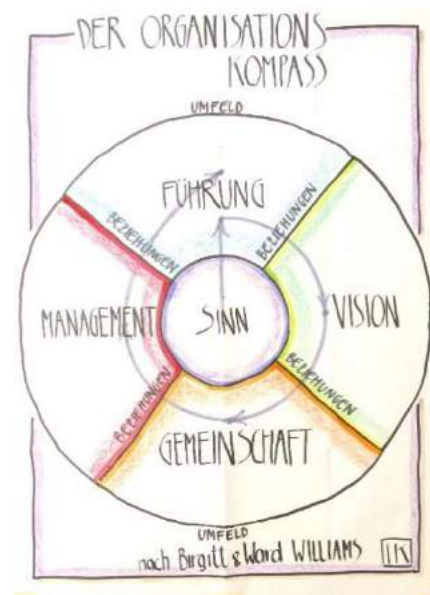 DER ORGANISATIONS
KOMPASS
UMFELD
FÜHRUNG
BEZIEHUNGEN
BEZIEHUNGEN
MANAGEMENT
SINN
VISION
BEZIEHUNGEN
BEZIEHUNGEN
GEMEINSCHAFT
UMFELD
nach Birgitt & Ward WILLIAMS
IK